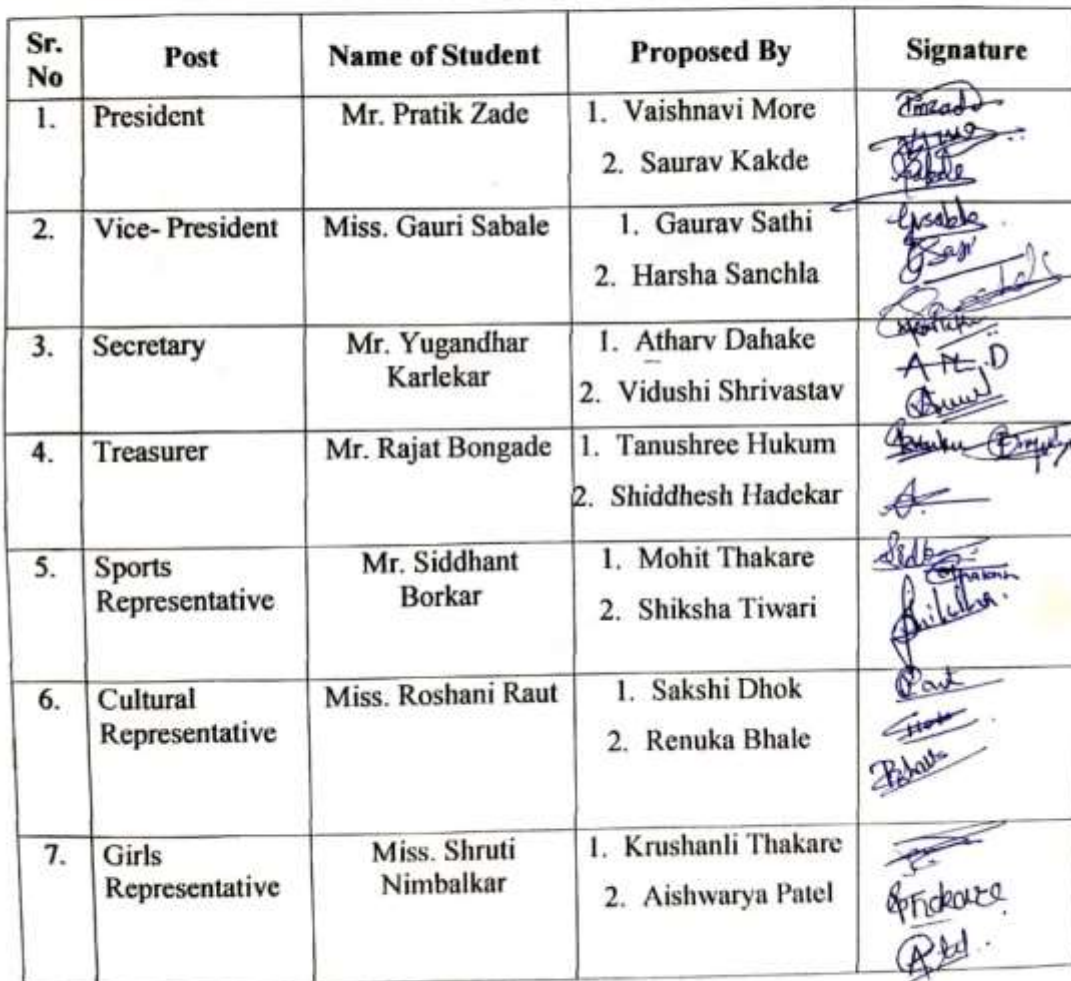 Sr. No Post Name of Student Proposed By Signature
1. President Mr. Pratik Zade 1. Vaishnavi More
2. Saurav Kakde
2. Vice- President Miss. Gauri Sabale 1. Gaurav Sathi
2. Harsha Sanchla
3. Secretary Mr. Yugandhar Karlekar 1. Atharv Dahake
2. Vidushi Shrivastav
4. Treasurer Mr. Rajat Bongade 1. Tanushree Hukum
2. Shiddhesh Hadekar
5. Sports Representative Mr. Siddhant Borkar 1. Mohit Thakare
2. Shiksha Tiwari
6. Cultural Representative Miss. Roshani Raut 1. Sakshi Dhok
2. Renuka Bhale
7. Girls Representative Miss. Shruti Nimbalkar 1. Krushanli Thakare
2. Aishwarya Patel